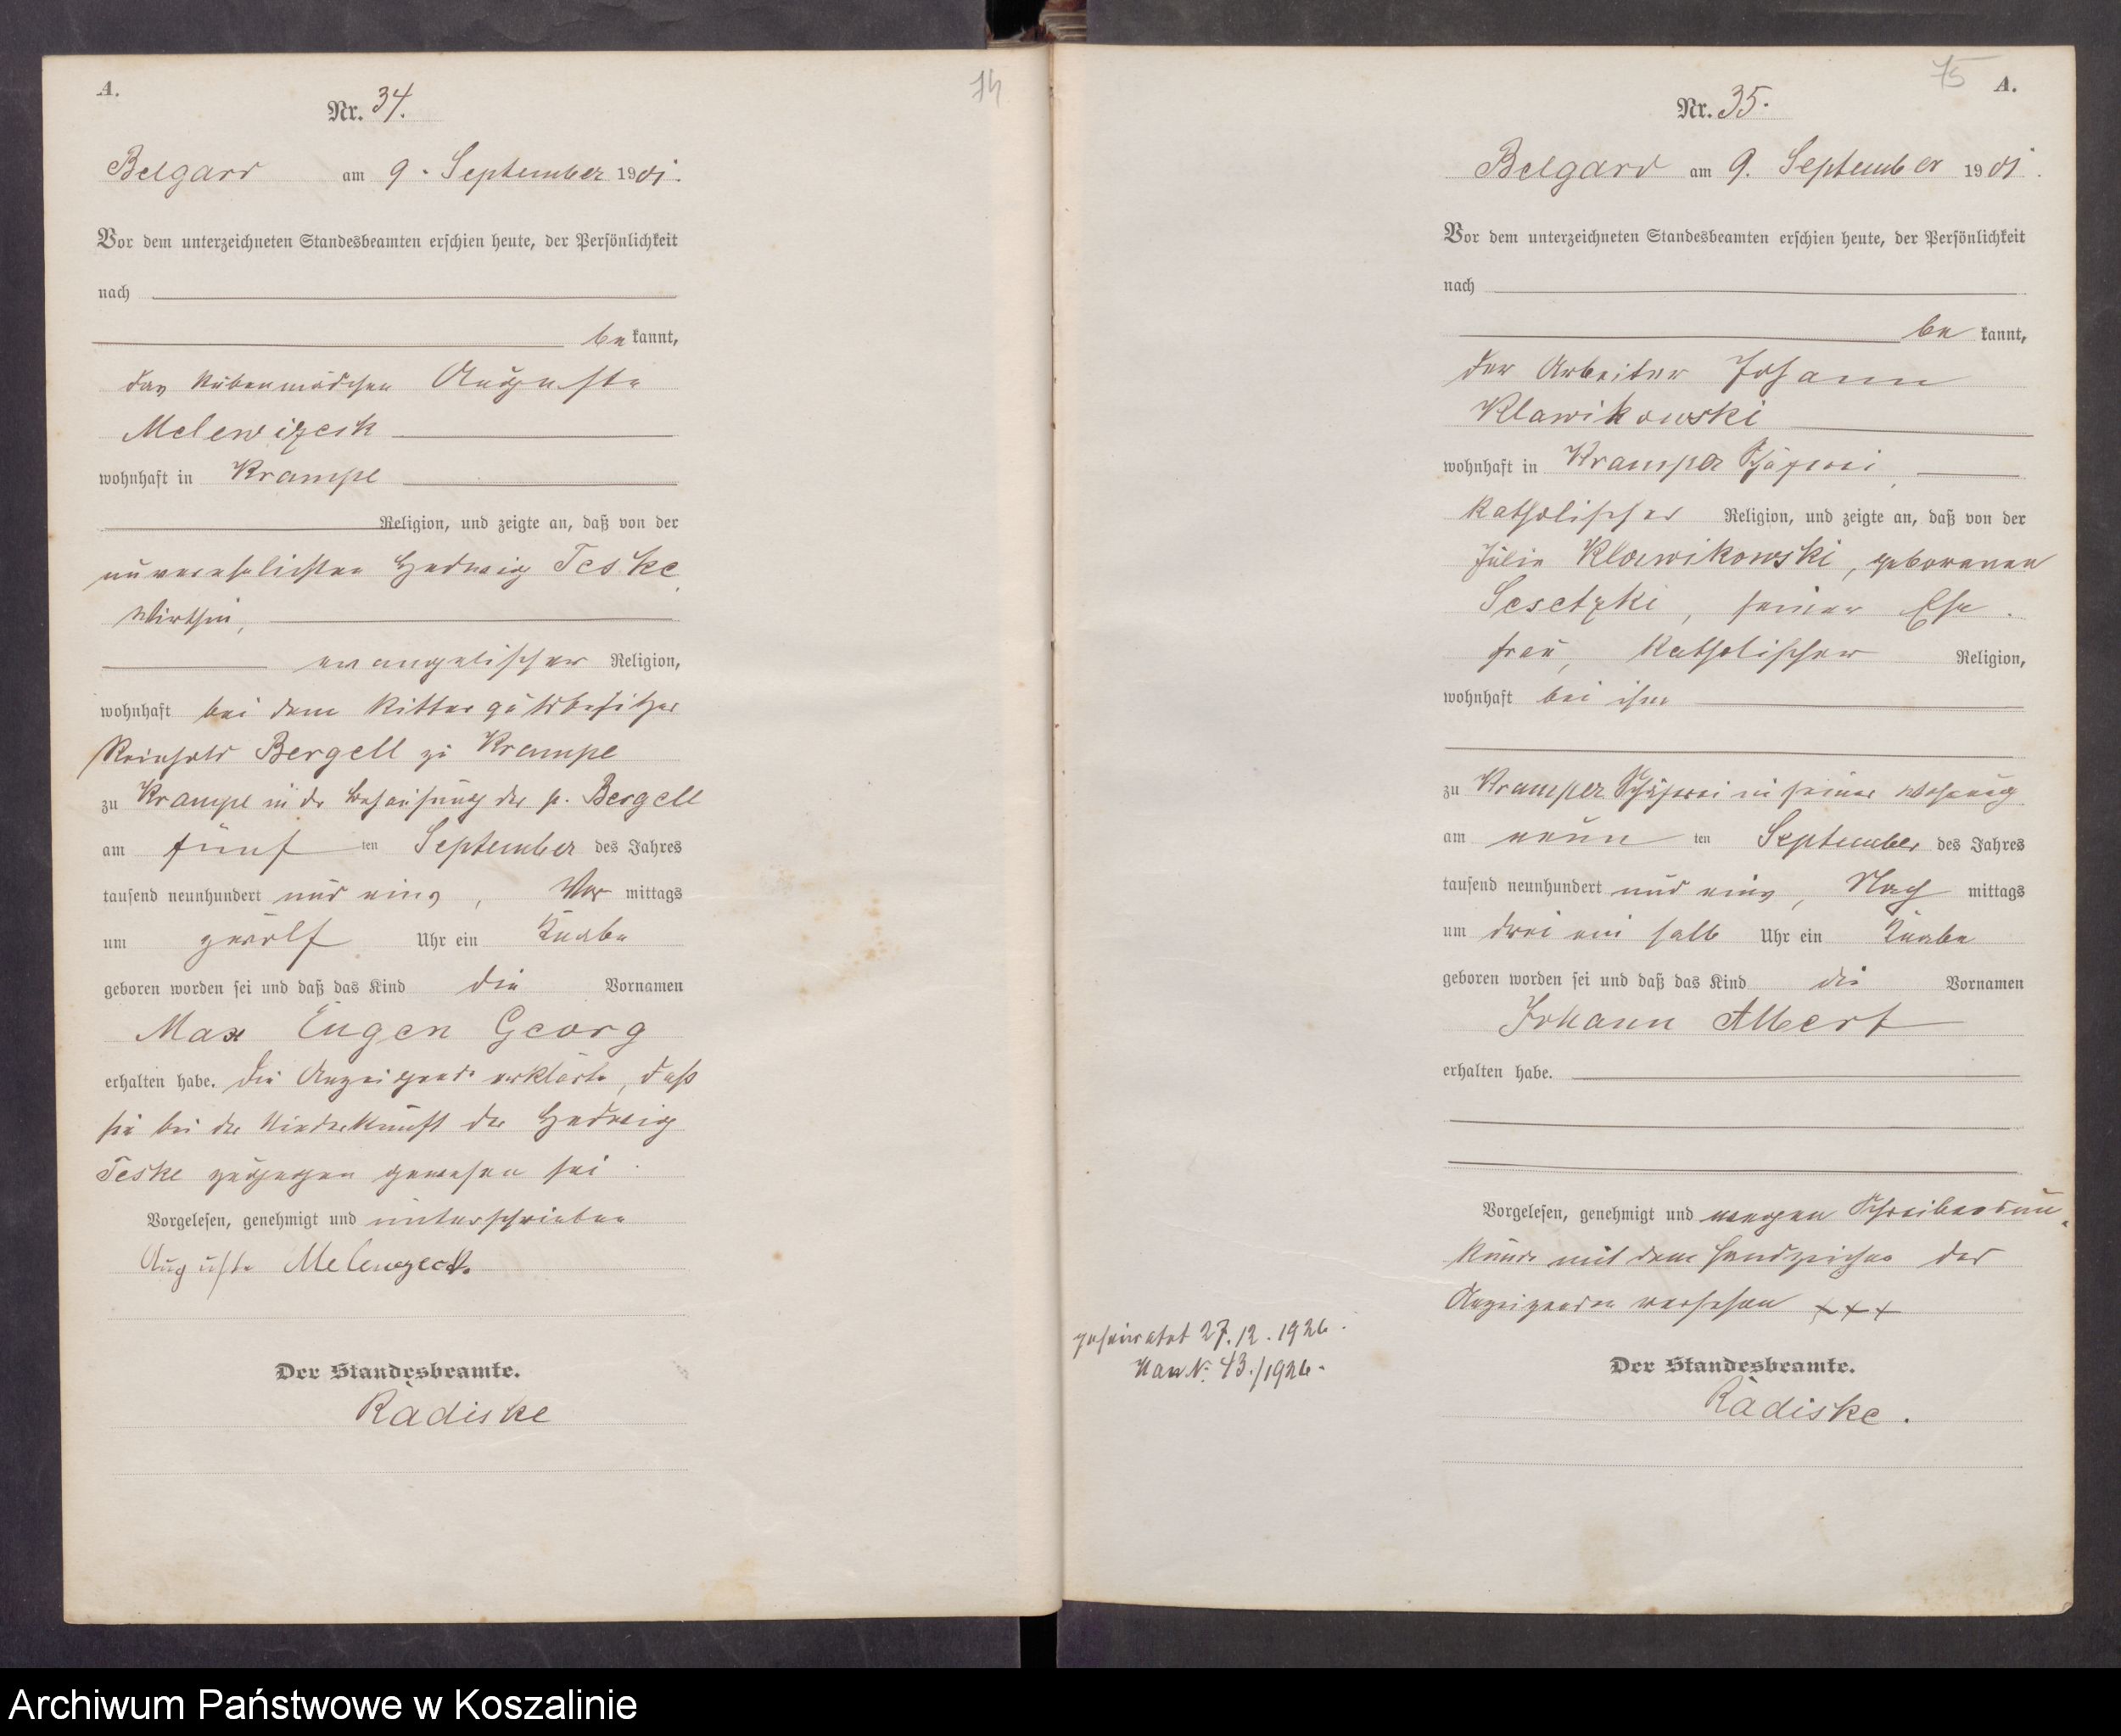 A.
74
Nr. 34.
Belgard am 9. September 1901.
Vor dem unterzeichneten Standesbeamten erschien heute, der Persönlichkeit
nach
be kannt,
das Stubenmädchen Auguste
Melewizeck
wohnhaft in Krampe
Religion, und zeigte an, daß von der
unverehelichten Hedwig Teske,
Wirthin,
evangelischer Religion,
wohnhaft bei dem Rittergutsbesitzer
Reinhold Bergell zu Krampe
zu Krampe in der Behausung des p. Bergell
am fünf ten September des Jahres
tausend neunhundert und eins, Vor mittags
um zwölf Uhr ein Knabe
geboren worden sei und daß das Kind die Vornamen
Max Eugen Georg
erhalten habe. Die Anzeigende erklärte, daß
sie bei der Niederkunft der Hedwig
Teske zugegen gewesen sei.
Vorgelesen, genehmigt und unterschrieben
Auguste Melewzeck.
Der Standesbeamte.
Radiske
75
A.
Nr. 35.
Belgard am 9. September 1901.
Vor dem unterzeichneten Standesbeamten erschien heute, der Persönlichkeit
nach
be kannt,
der Arbeiter Johann
Klawikowski
wohnhaft in Kramper Schäferei
katholischer Religion, und zeigte an, daß von der
Julie Klawikowski, geborenen
Sesetzki, seiner Ehe-
frau, katholischer Religion,
wohnhaft bei ihm
zu Kramper Schäferei in seiner Wohnung
am neun ten September des Jahres
tausend neunhundert und eins, Nach mittags
um drei ein halb Uhr ein Knabe
geboren worden sei und daß das Kind die Vornamen
Johann Albert
erhalten habe.
Vorgelesen, genehmigt und wegen Schreibensun-
kunde mit dem Handzeichen des
Anzeigenden versehen +++
geheiratet 27.12.1926.
No. 43./1926.
Der Standesbeamte.
Radiske.
Archiwum Państwowe w Koszalinie